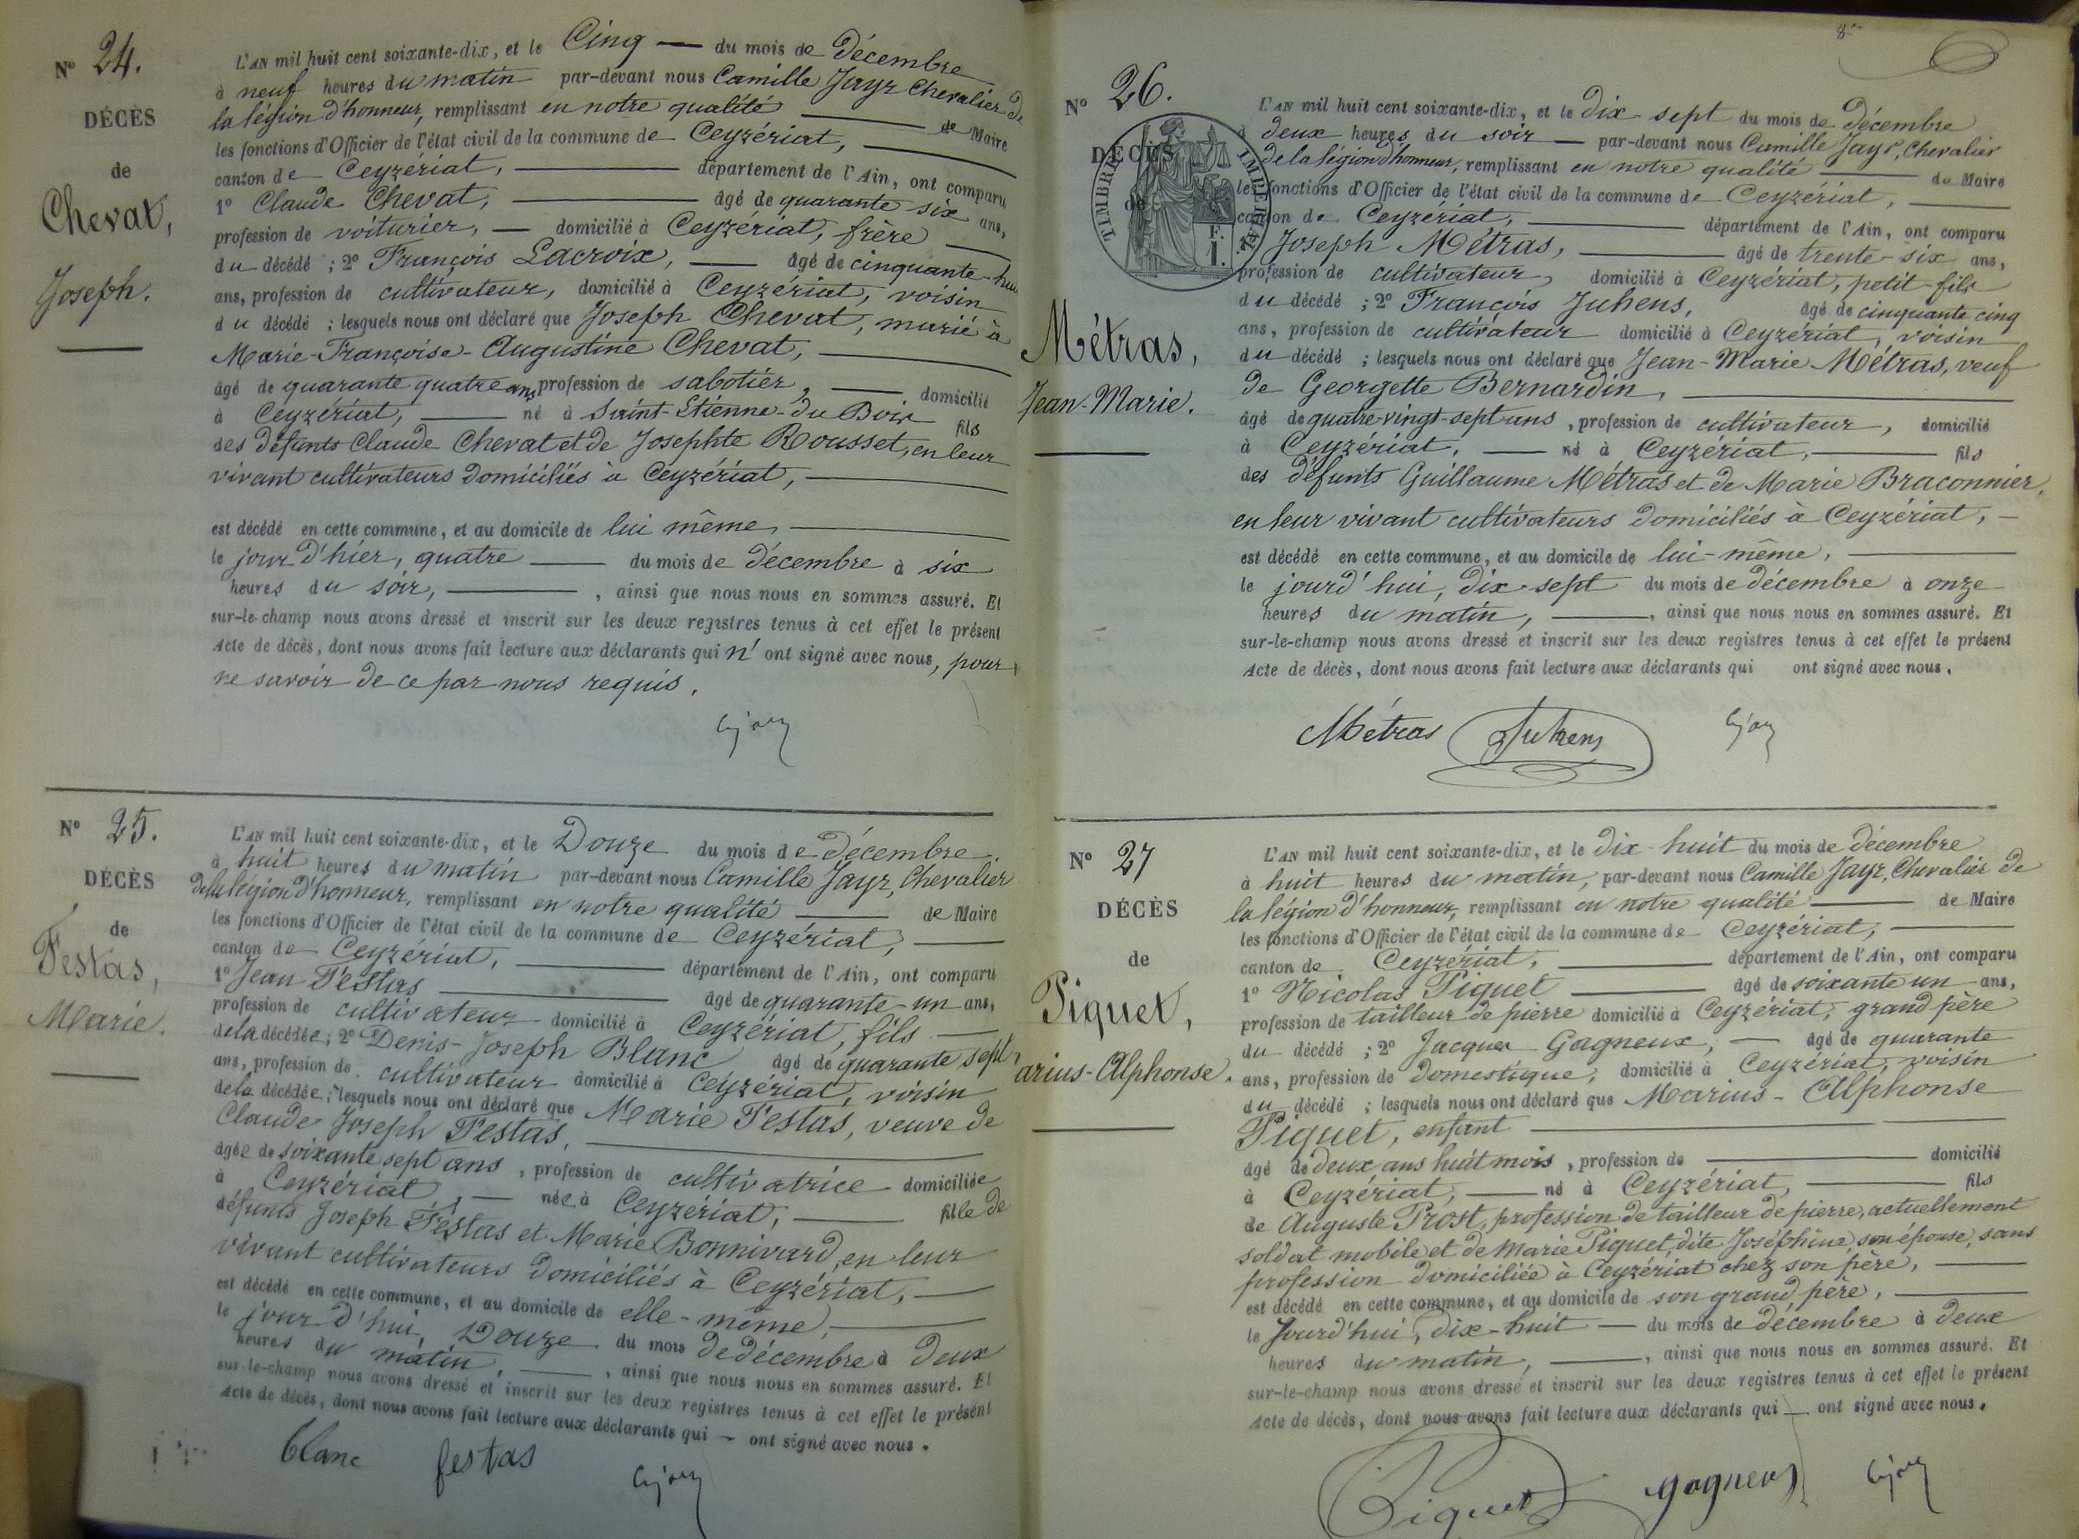 N° 24.
DÉCÈS
de
Chevat,
Joseph.
L'AN mil huit cent soixante-dix, et le Cinq du mois de Décembre
à neuf heures du matin par-devant nous Camille Jayr Chevalier de
la légion d'honneur, remplissant en notre qualité de Maire
les fonctions d'Officier de l'état civil de la commune de Ceyzériat,
canton de Ceyzériat, département de l'Ain, ont comparu
1° Claude Chevat, âgé de quarante six ans,
profession de voiturier, domicilié à Ceyzériat, frère
du décédé ; 2° François Lacroix, âgé de cinquante-huit
ans, profession de cultivateur, domicilié à Ceyzériat, voisin
du décédé ; lesquels nous ont déclaré que Joseph Chevat, marié à
Marie-Françoise-Augustine Chevat,
âgé de quarante quatre ans, profession de sabotier, domicilié
à Ceyzériat, né à Saint-Etienne-du Bois fils
des défunts Claude Chevat et de Josephte Rousset, en leur
vivant cultivateurs domiciliés à Ceyzériat,
est décédé en cette commune, et au domicile de lui même,
le jour d'hier, quatre du mois de décembre à six
heures du soir, , ainsi que nous nous en sommes assuré. Et
sur-le-champ nous avons dressé et inscrit sur les deux registres tenus à cet effet le présent
Acte de décès, dont nous avons fait lecture aux déclarants qui n'ont signé avec nous, pour
ne savoir de ce par nous requis.
N° 25.
DÉCÈS
de
Festas,
Marie.
L'AN mil huit cent soixante-dix, et le Douze du mois de Décembre
à huit heures du matin par-devant nous Camille Jayr, Chevalier
de la légion d'honneur, remplissant en notre qualité de Maire
les fonctions d'Officier de l'état civil de la commune de Ceyzériat,
canton de Ceyzériat, département de l'Ain, ont comparu
1° Jean Festas âgé de quarante-un ans,
profession de cultivateur domicilié à Ceyzériat, fils
de la décédée; 2° Denis-Joseph Blanc âgé de quarante sept
ans, profession de cultivateur domicilié à Ceyzériat, voisin
de la décédée; lesquels nous ont déclaré que Marie Festas, veuve de
Claude Joseph Festas,
âgée de soixante sept ans, profession de cultivatrice domiciliée
à Ceyzériat, née à Ceyzériat, fille de
défunts Joseph Festas et Marie Bonnivard, en leur
vivant cultivateurs domiciliés à Ceyzériat,
est décédé en cette commune, et au domicile de elle-même,
le jour d'hui, Douze du mois de décembre à deux
heures du matin, , ainsi que nous nous en sommes assuré. Et
sur-le-champ nous avons dressé et inscrit sur les deux registres tenus à cet effet le présent
Acte de décès, dont nous avons fait lecture aux déclarants qui ont signé avec nous.
blanc festas
8
N° 26.
TIMBRE IMPÉRIAL
F.
1.
DÉCÈS
de
Métras,
Jean-Marie.
L'AN mil huit cent soixante-dix, et le dix sept du mois de décembre
à deux heures du soir par-devant nous Camille Jayr, Chevalier
de la légion d'honneur, remplissant en notre qualité de Maire
les fonctions d'Officier de l'état civil de la commune de Ceyzériat,
canton de Ceyzériat, département de l'Ain, ont comparu
Joseph Métras, âgé de trente-six ans,
profession de cultivateur, domicilié à Ceyzériat, petit-fils
du décédé ; 2° François Juhens, âgé de cinquante cinq
ans, profession de cultivateur domicilié à Ceyzériat, voisin
du décédé ; lesquels nous ont déclaré que Jean-Marie Métras, veuf
de Georgette Bernardin,
âgé de quatre-vingt-sept ans, profession de cultivateur, domicilié
à Ceyzériat, né à Ceyzériat, fils
des défunts Guillaume Métras et de Marie Braconnier,
en leur vivant cultivateurs domiciliés à Ceyzériat,
est décédé en cette commune, et au domicile de lui-même,
le jourd'hui, dix-sept du mois de décembre à onze
heures du matin, , ainsi que nous nous en sommes assuré. Et
sur-le-champ nous avons dressé et inscrit sur les deux registres tenus à cet effet le présent
Acte de décès, dont nous avons fait lecture aux déclarants qui ont signé avec nous.
Métras Juhens
N° 27
DÉCÈS
de
Piquet,
arius-Alphonse.
L'AN mil huit cent soixante-dix, et le dix-huit du mois de décembre
à huit heures du matin, par-devant nous Camille Jayr, Chevalier de
la légion d'honneur, remplissant en notre qualité de Maire
les fonctions d'Officier de l'état civil de la commune de Ceyzériat,
canton de Ceyzériat, département de l'Ain, ont comparu
1° Nicolas Piquet âgé de soixante un ans,
profession de tailleur de pierre domicilié à Ceyzériat, grand père
du décédé ; 2° Jacques Gagneux, âgé de quarante
ans, profession de domestique, domicilié à Ceyzériat, voisin
du décédé ; lesquels nous ont déclaré que Marius-Alphonse
Piquet, enfant
âgé de deux ans huit mois, profession de domicilié
à Ceyzériat, né à Ceyzériat, fils
de Auguste Prost, profession de tailleur de pierre, actuellement
soldat mobile et de Marie Piquet, dite Joséphine, son épouse, sans
profession domiciliée à Ceyzériat chez son père,
est décédé en cette commune, et au domicile de son grand père,
le jourd'hui, dix-huit du mois de décembre à deux
heures du matin, , ainsi que nous nous en sommes assuré. Et
sur-le-champ nous avons dressé et inscrit sur les deux registres tenus à cet effet le présent
Acte de décès, dont nous avons fait lecture aux déclarants qui ont signé avec nous.
Piquet gagneux